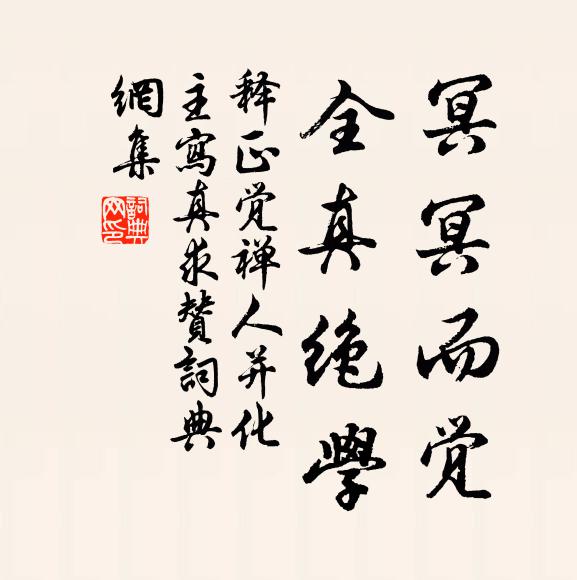 冥冥而觉
全真绝學
释正觉禅人并化
主寫真求賛詞典
網集
詞典网印